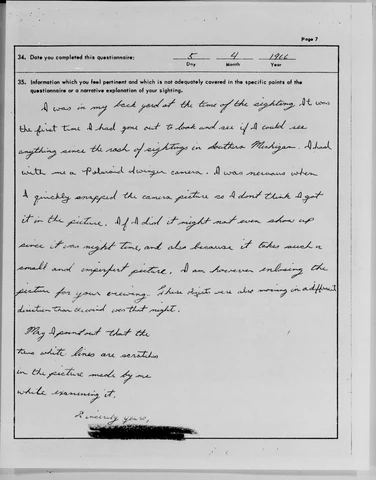 Page 7
34. Date you completed this questionnaire: 5 4 1966
Day Month Year
35. Information which you feel pertinent and which is not adequately covered in the specific points of the
questionnaire or a narrative explanation of your sighting.
I was in my back yard at the time of the sighting. It was
the first time I had gone out to look and see if I could see
anything since the rash of sightings in Southern Michigan. I had
with me a Polaroid Swinger camera. I was nervous when
I quickly snapped the camera picture so I dont think I got
it in the picture. If I did it might not even show up
since it was night time, and also because it takes such a
small and imperfect picture. I am however enlosing the
picture for your viewing. These objects were also moving in a different
direction than the wind was that night.
May I point out that the
two white lines are scratches
in the picture made by me
while examining it.
Sincerely yours,